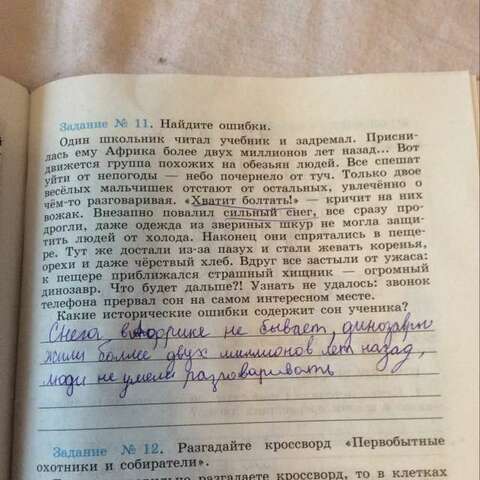 Задание № 11. Найдите ошибки.
Один школьник читал учебник и задремал. Присни-
лась ему Африка более двух миллионов лет назад... Вот
движется группа похожих на обезьян людей. Все спешат
уйти от непогоды — небо почернело от туч. Только двое
весёлых мальчишек отстают от остальных, увлечённо о
чём-то разговаривая. «Хватит болтать!» — кричит на них
вожак. Внезапно повалил сильный снег, все сразу про-
дрогли, даже одежда из звериных шкур не могла защи-
тить людей от холода. Наконец они спрятались в пеще-
ре. Тут же достали из-за пазух и стали жевать коренья,
орехи и даже чёрствый хлеб. Вдруг все застыли от ужаса:
к пещере приближался страшный хищник — огромный
динозавр. Что будет дальше?! Узнать не удалось: звонок
телефона прервал сон на самом интересном месте.
Какие исторические ошибки содержит сон ученика?
Снега в Африке не бывает, динозавры
жили более двух миллионов лет назад,
люди не умели разговаривать
Задание № 12. Разгадайте кроссворд «Первобытные
охотники и собиратели».
разгадаете кроссворд, то в клетках